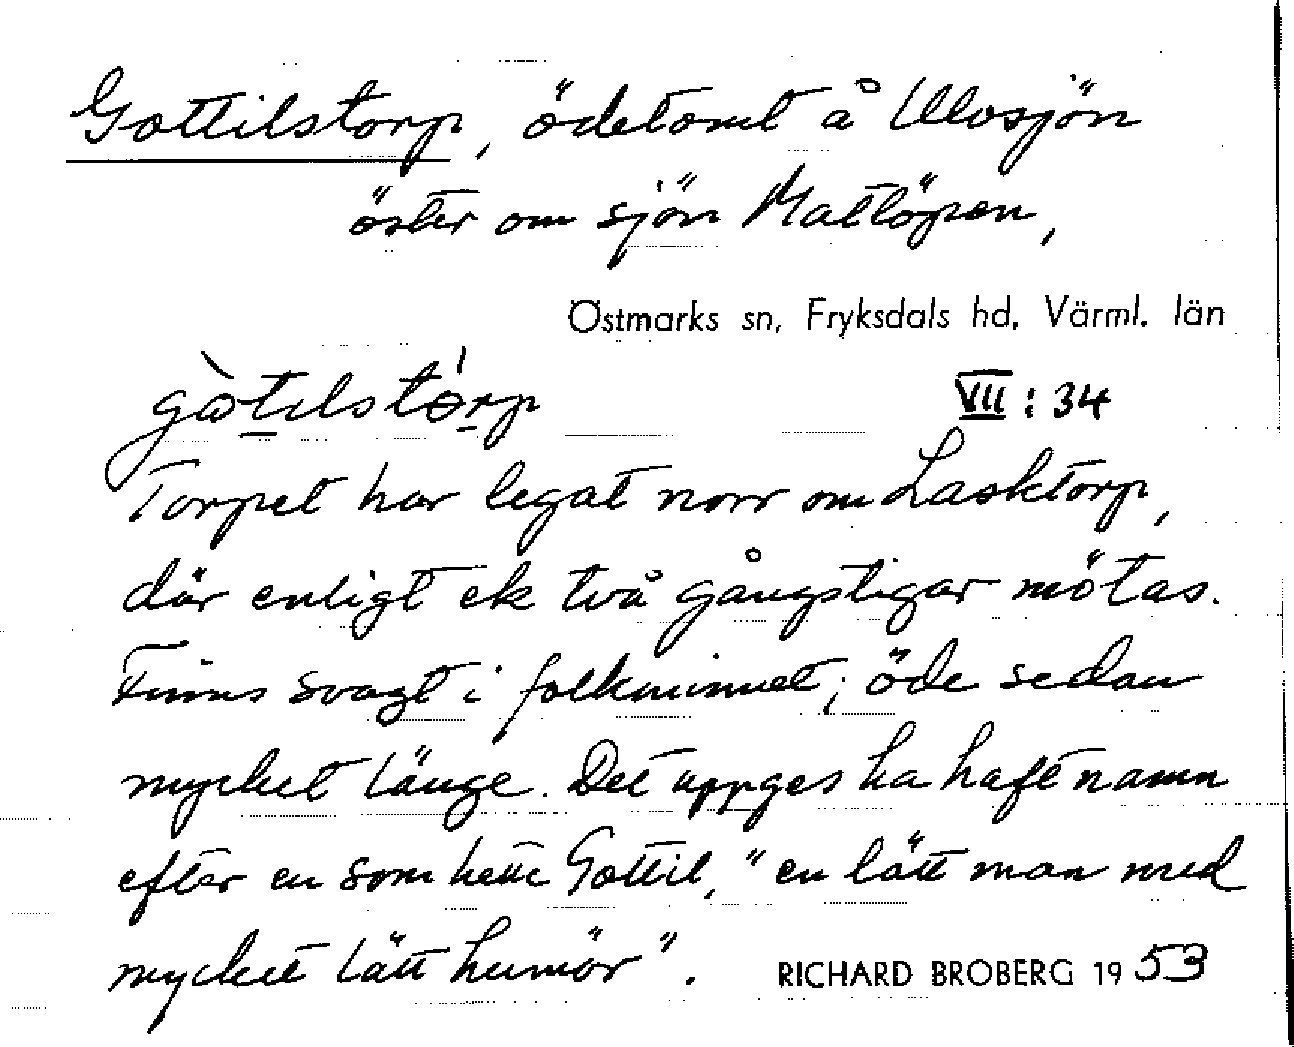 Gottilstorp, ödetomt å Ulvsjön
öster om sjön Mattöpen,
Östmarks sn, Fryksdals hd, Värml. län
gòtilstórp
VII : 34
Torpet har legat norr om Lasktorp,
där enligt ek två gångstigar mötas.
Finns svagt i folkminnet; öde sedan
mycket länge. Det uppges ha haft namn
efter en som hette Gottil, "en lätt man med
mycket lätt humör".
RICHARD BROBERG 1953